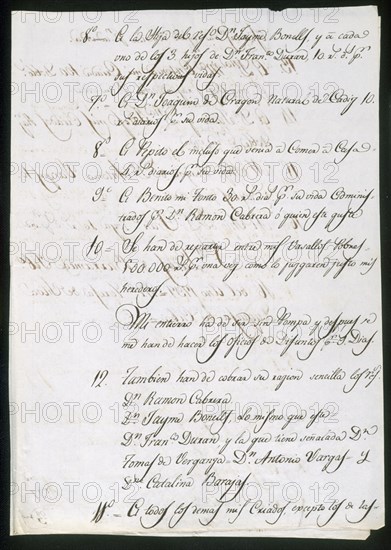 8º A la Hija del referº Dn. Jayme Bonells y a cada
uno de los 3. hijos de Dn. Franco. Duran 10 r.s d.s p.r
sus respectivas vidas
7º A Dn. Joaquin de Aragon Natural de Cadiz 10.
r.s diarios p.r su vida
8º A Benito el incluso que venia a Comer a Casa
4 r.s diarios p.r su vida.
9º A Benita mi tonta 30 r.s dia.s p.r su vida Administrados p.r Dn. Ramon Cabrera ó quien este guste
10 Se han de repartir entre mis Vasallos Pobres
800.000 r.s p.r una vez como lo juzgaren justo mis
herederos.
Mi entierro ha de ser sin Pompa y despues se
me han de hacer los oficios de Difuntos, 9. Dias.
12. Tambien han de cobrar su racion sencilla los S.res
Dn. Ramon Cabrera
Dn. Jayme Bonells, lo mismo que este
Dn. Franco. Duran y la que tiene señalada Dn.
Tomas de Verganza - Dn. Antonio Vargas - y
Da. Catalina Barajas.
11º A todos los demas mis Criados excepto los de las